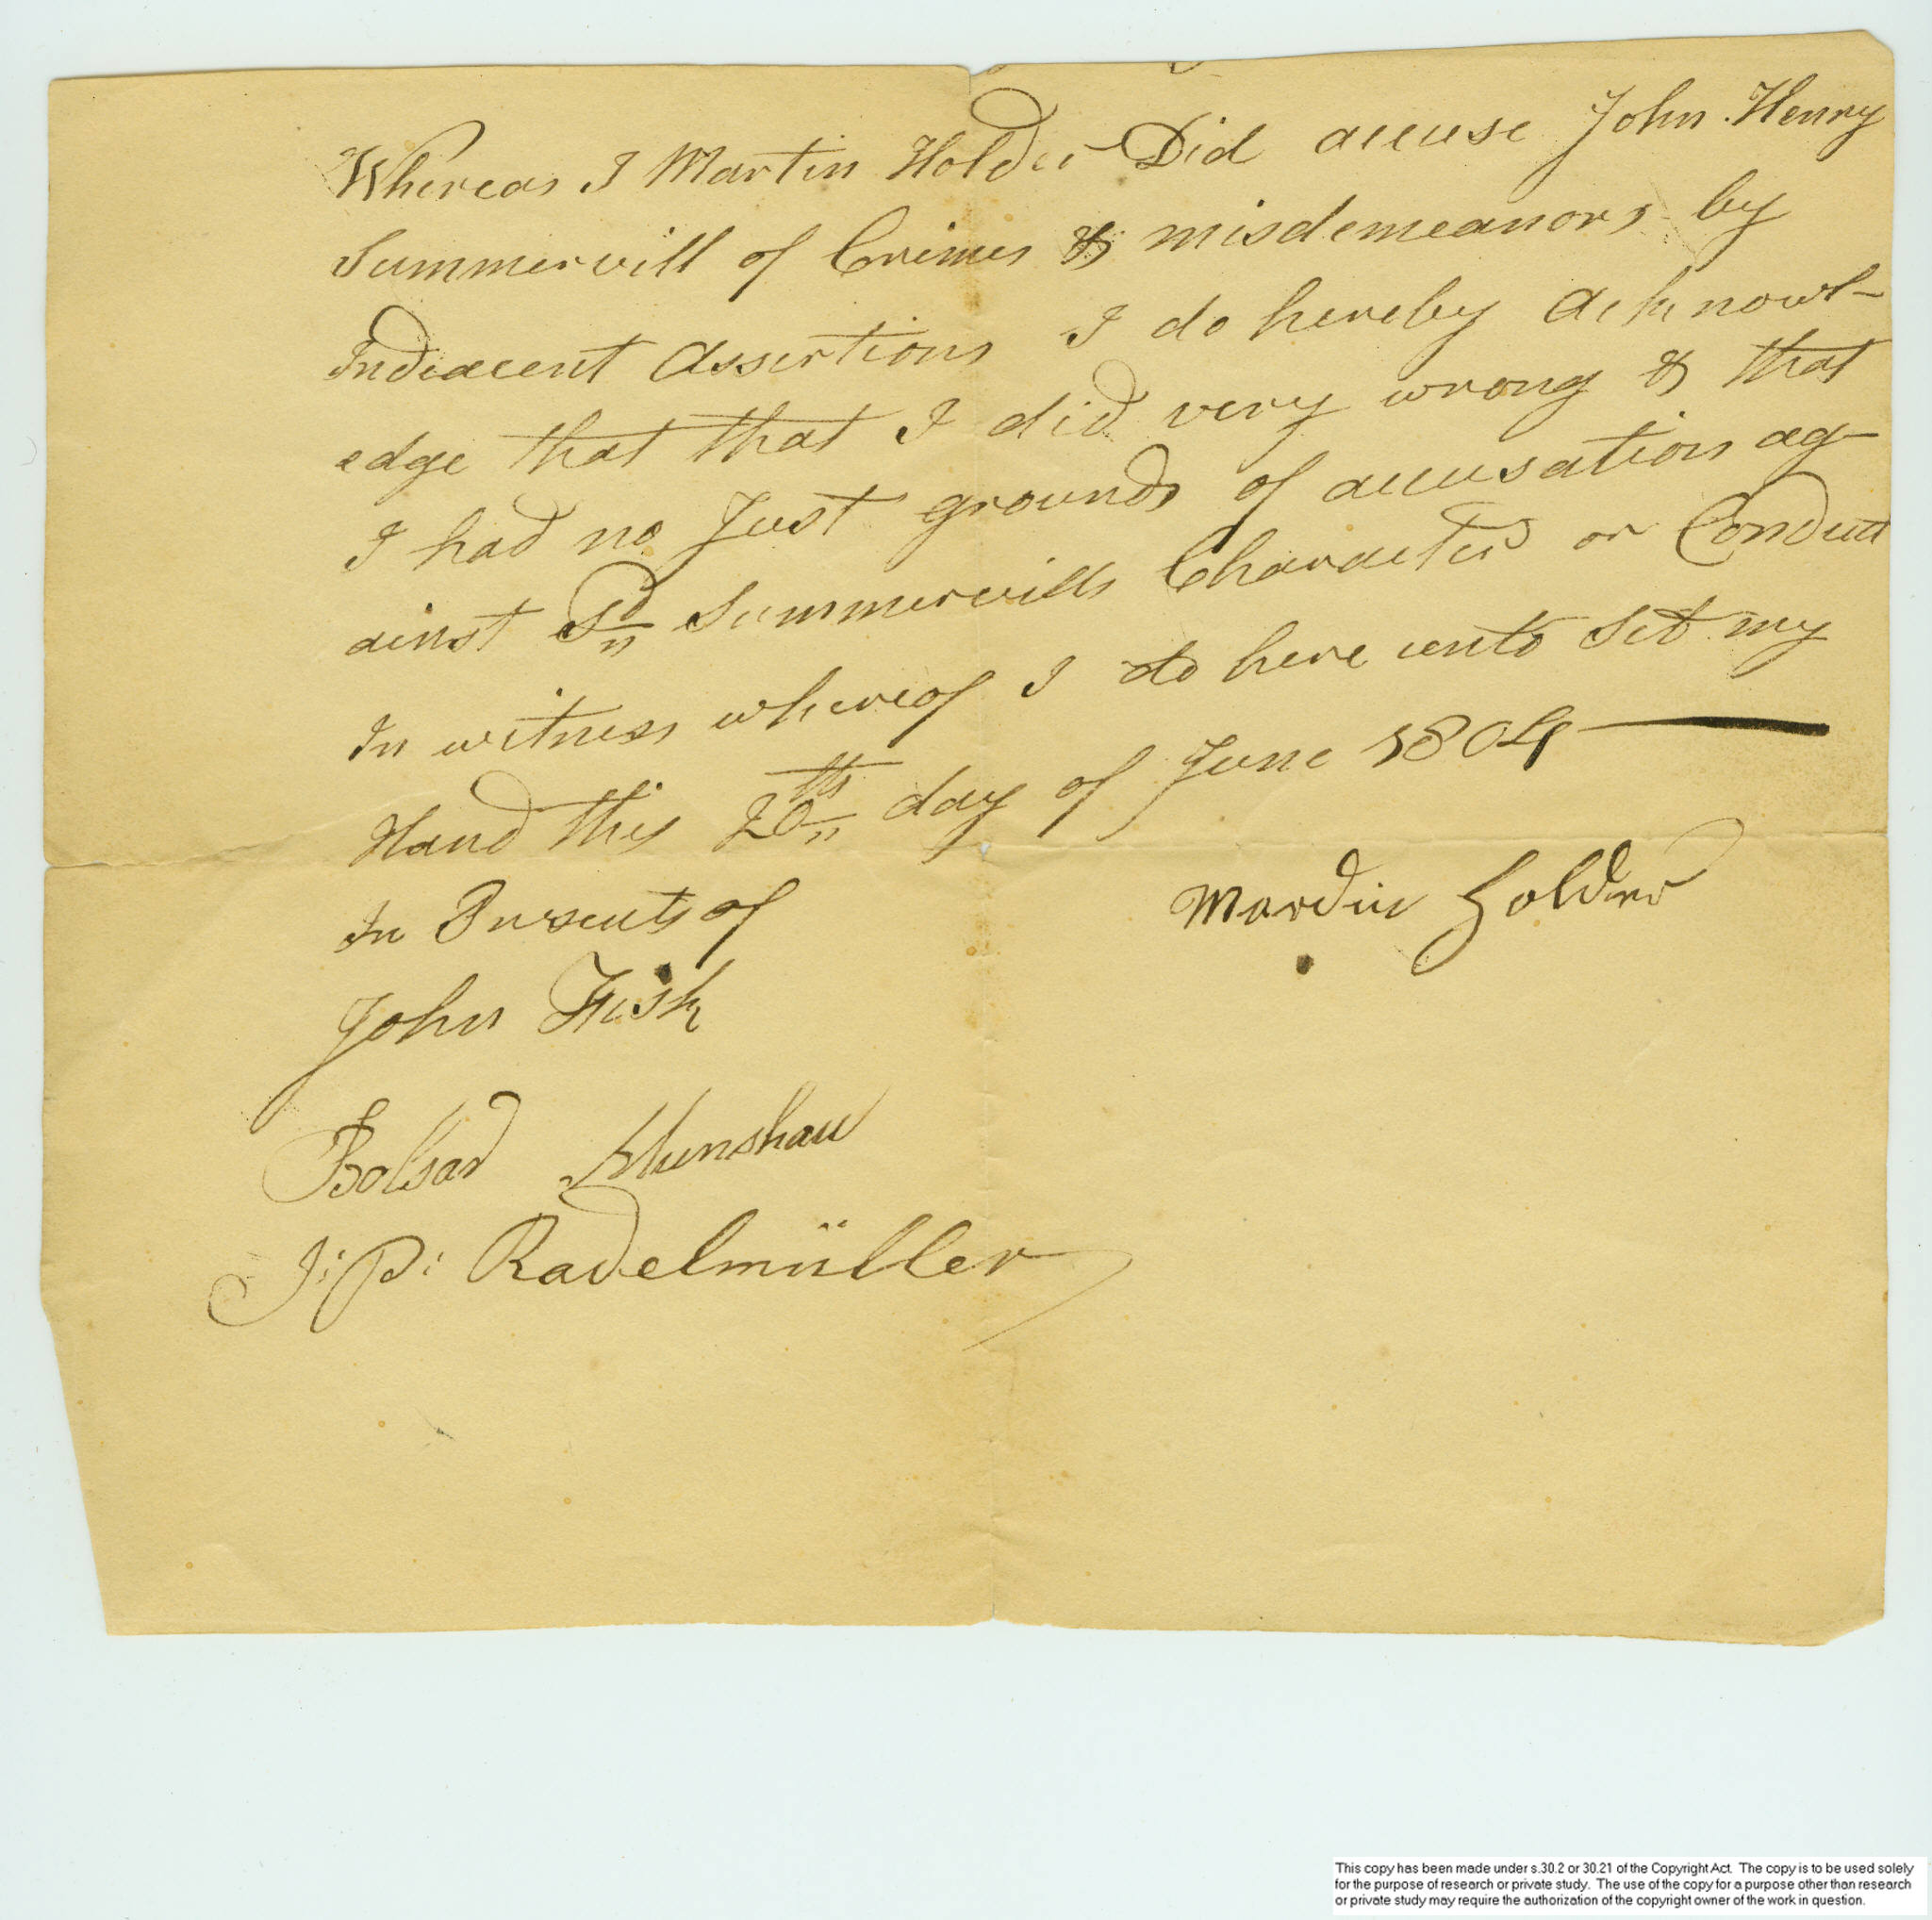 Whereas I Martin Holder Did accuse John Henry
Summervill of Crimes & misdemeanors by
Indeacent Assertions I do hereby Acknowl-
edge that that I did very wrong & that
I had no Just grounds of accusation ag-
ainst Sd Summervills Character or Conduct
In witness whereof I do here unto Set my
Hand this 20th day of June 1804
In Presents of
Mardin Holder
John Fisk
Bolsar Munshaw
J: P: Radelmüller
This copy has been made under s.30.2 or 30.21 of the Copyright Act. The copy is to be used solely
for the purpose of research or private study. The use of the copy for a purpose other than research
or private study may require the authorization of the copyright owner of the work in question.